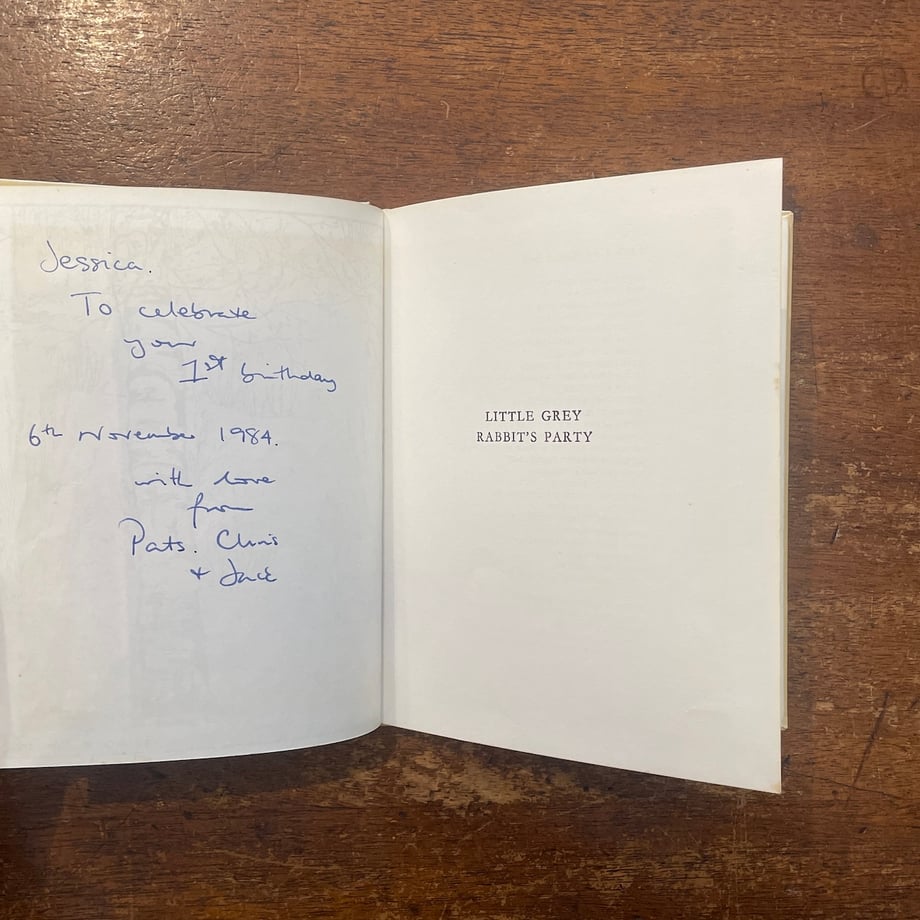 Jessica.
To celebrate
your
1st birthday
6th November 1984.
with love
from
Pats. Chris
+ Jack
LITTLE GREY
RABBIT'S PARTY